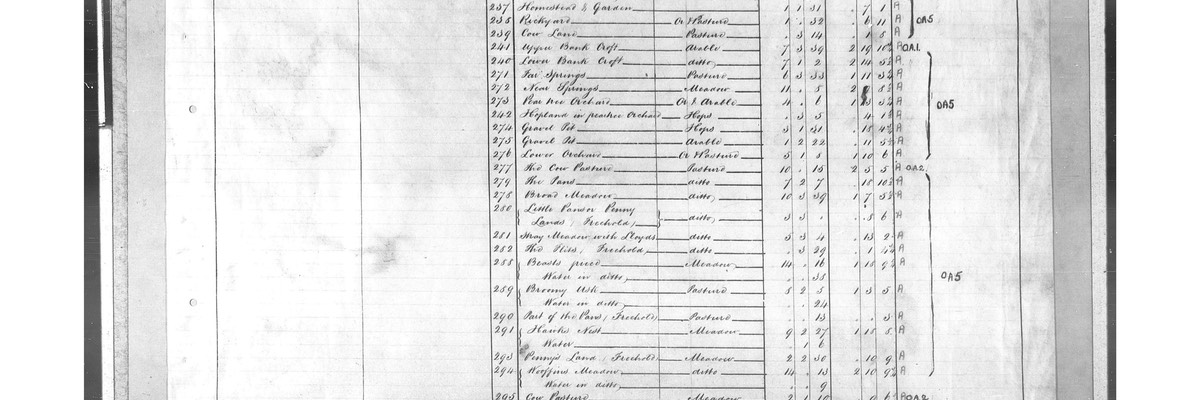 237 Homestead & Garden 1 1 31 . 7 1 A
238 Rickyard Or & Pasture 1 . 32 . 6 11 A OA5
239 Cow Land Pasture . 3 14 . 1 8 A
241 Upper Bank Croft Arable 7 3 39 2 19 10½ A OA1.
240 Lower Bank Croft ditto 7 1 2 2 14 A
271 Far Springs Pasture 6 3 33 1 11 A
272 Near Springs Meadow 11 . 5 2 A
273 Pear tree Orchard Or & Arable 4 . 6 1 A OA5
242 Hopland in peartree Orchard Hops . 3 5 4 A
274 Gravel Pit Hops 3 1 31 . 18 A
275 Gravel Pit Arable 1 2 22 . 11 A
276 Lower Orchard Or & Pasture 5 1 8 1 10 6 A
277 The Cow Pasture Pasture 10 . 15 2 5 5 A OA2.
279 The Pans ditto 7 2 7 . 18 10½ A
278 Broad Meadow ditto 10 3 39 1 7 A
280 Little Pans or Penny
Lands (Freehold) ditto 3 3 . . 8 6 A
281 Stray Meadow with Lloyds ditto 5 3 4 . 13 2 A
282 The Flitts (Freehold) ditto . 3 29 . 1 A
288 Beasts piece Meadow 14 . 16 1 18 9 A OA5
Water in ditto . . 38
289 Broomy Usk Pasture 8 2 5 1 3 5 A
Water in ditto . . 24
290 Part of the Pans (Freehold) Pasture . . 13 . . 3 A
291 Hawks Nest Meadow 9 2 27 1 18 8 A
Water . 1 6
293 Pennys Land (Freehold) Meadow 2 2 30 . 10 9 A
294 Wooffins Meadow ditto 14 . 13 2 10 A
Water in ditto . . 9
295 Cow Pasture Meadow 2 1 10 A OA2